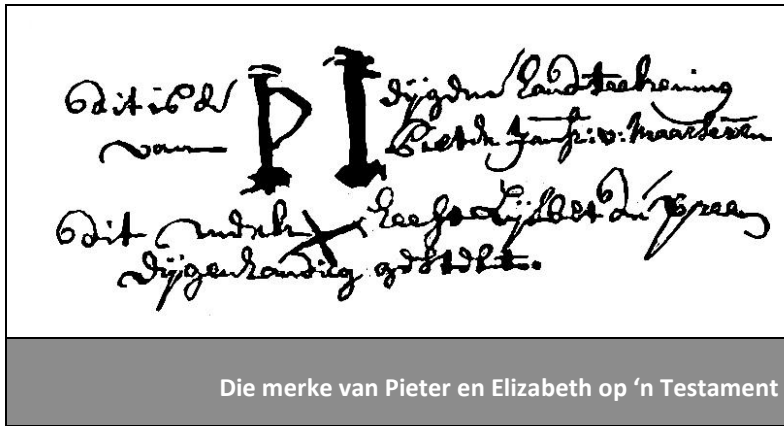 dit is de PI eijgene handteekening
van Pieter Jansz: v: Maarseveen
dit merk X heeft Lijsbet
Eijgenhandig gestelt.
Die merke van Pieter en Elizabeth op ‘n Testament